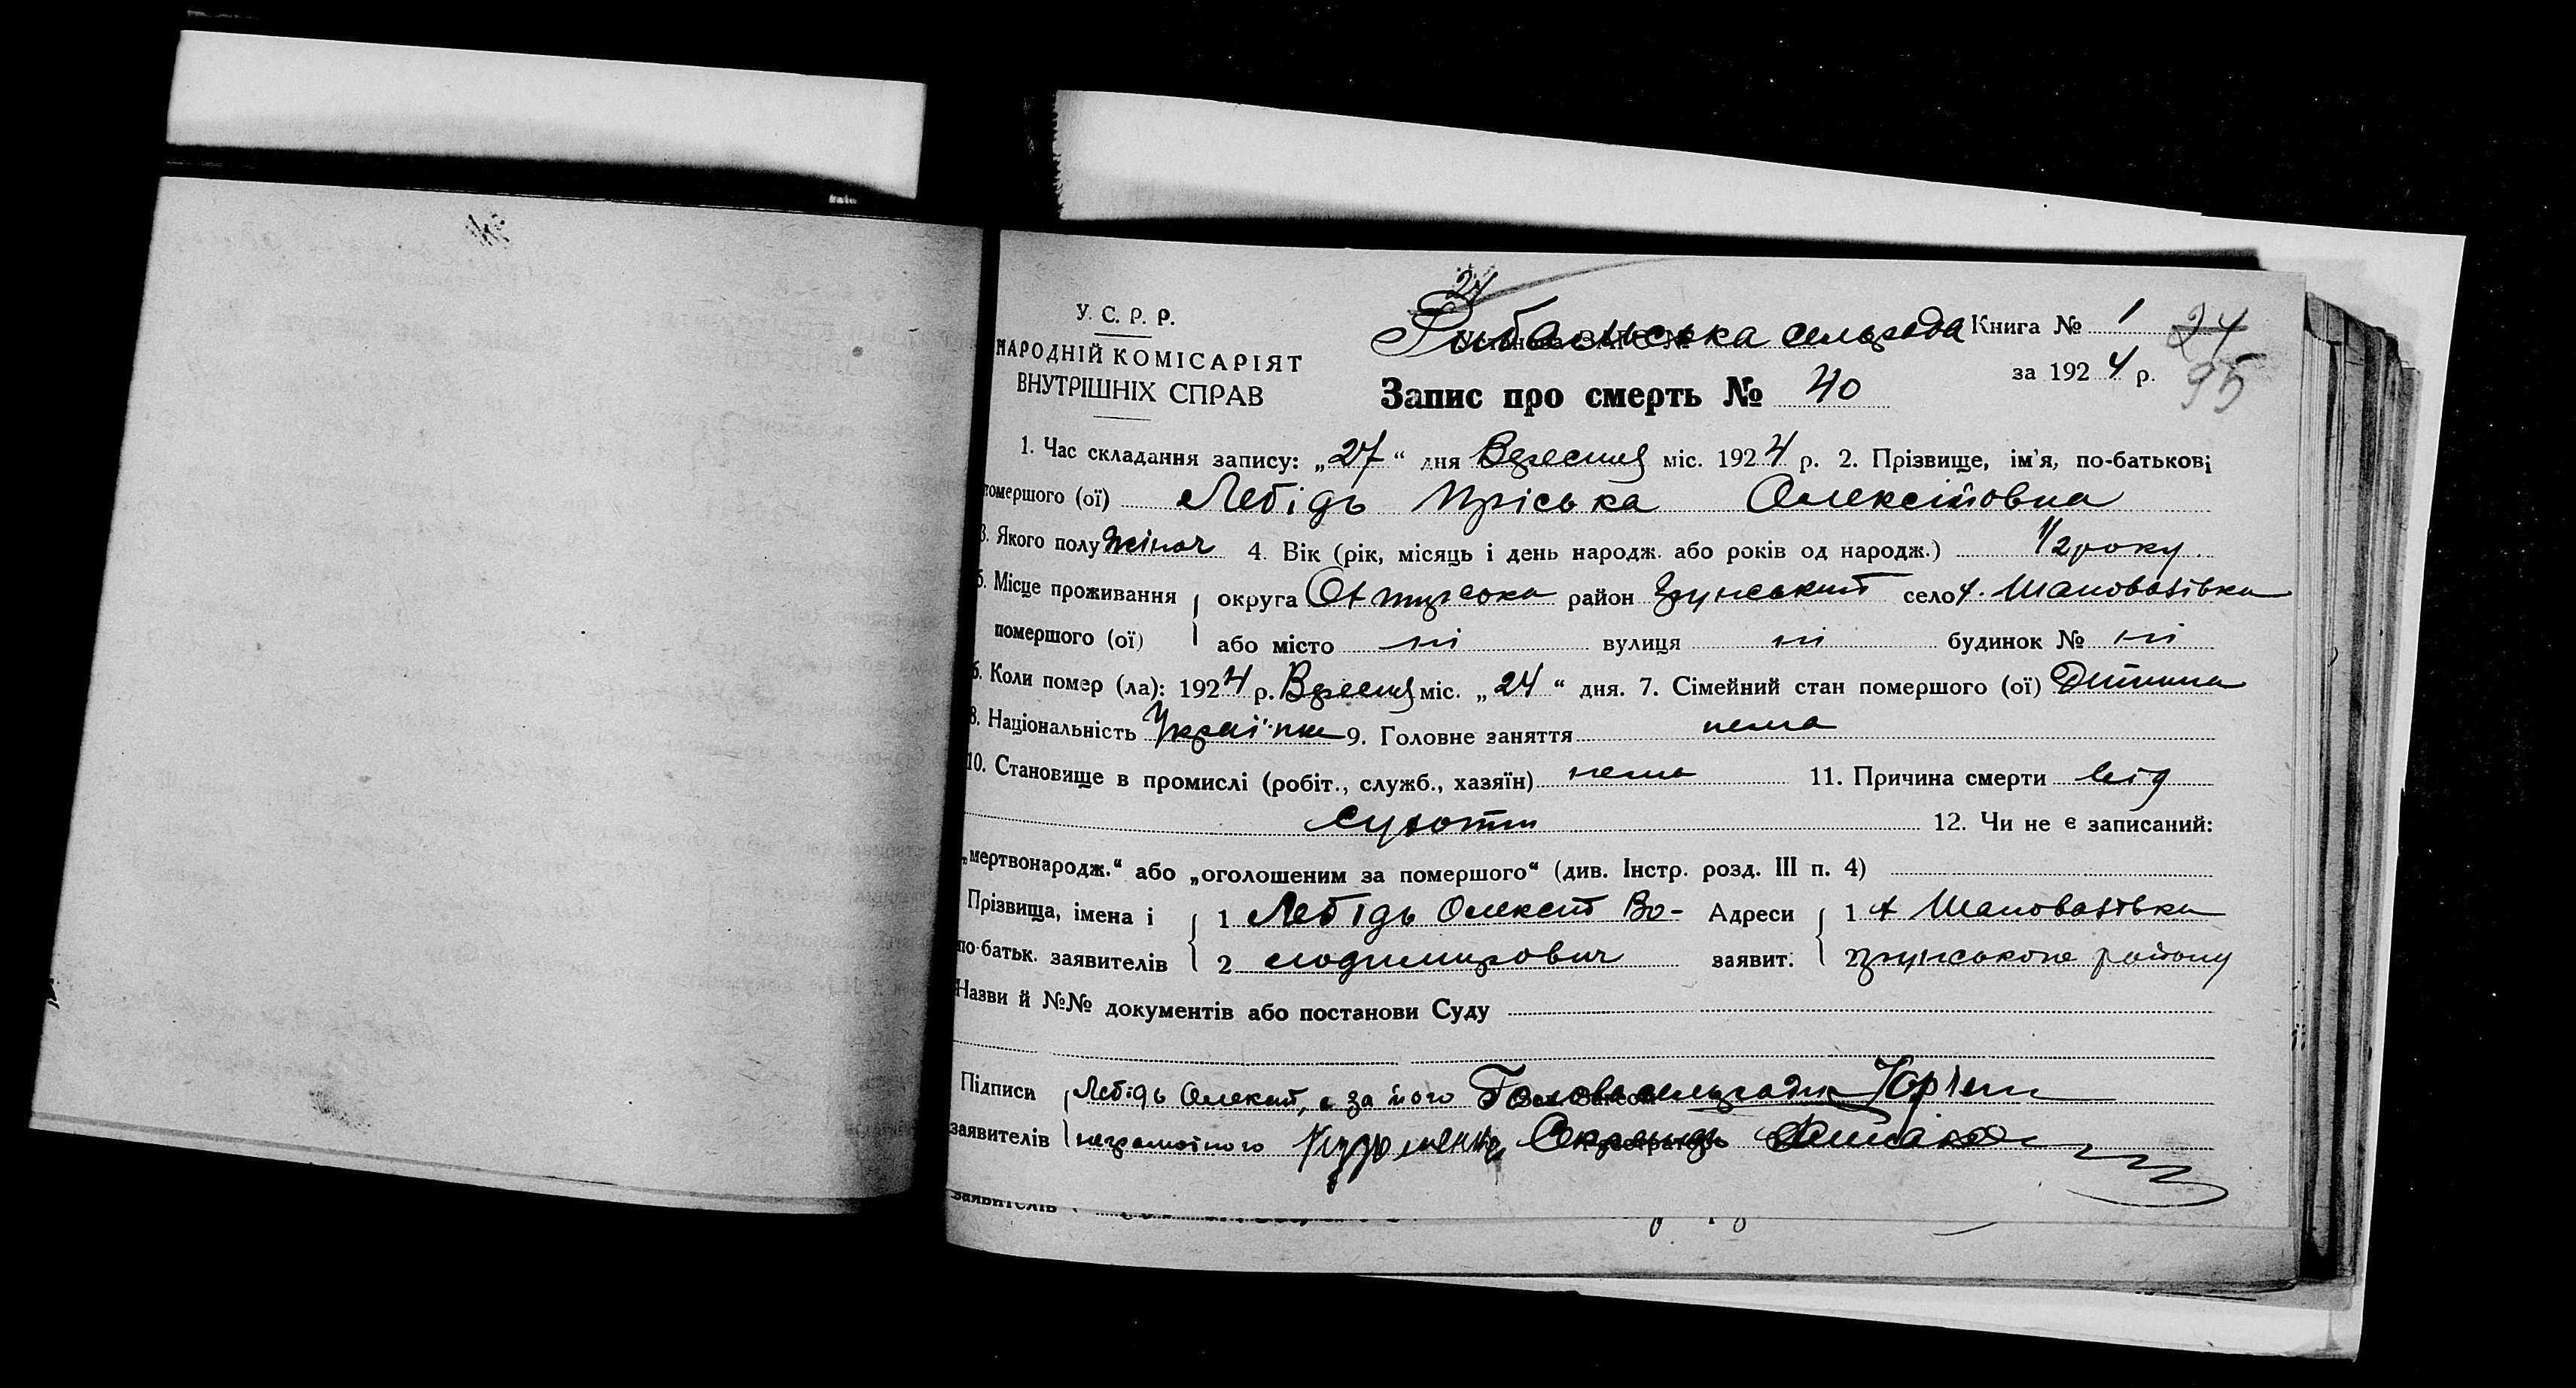 24
У. С. Р. Р.
НАРОДНІЙ КОМІСАРІЯТ
ВНУТРІШНІХ СПРАВ
Рибальська сельрада Книга № 1 24
за 1924 р. 95
Запис про смерть № 40
1. Час складання запису: „27“ дня Вересня міс. 1924 р. 2. Прізвище, ім'я, по-батькові
помершого (ої) Лебідь Пріська Олексіївна
3. Якого полу жіноч 4. Вік (рік, місяць і день народж. або років од народж.) 1/2 року
5. Місце проживання округа Охтирсока район Грунський село х. Шаповалівка
помершого (ої) або місто ні вулиця ні будинок № ні
6. Коли помер (ла): 1924 р. Вересня міс. „24“ дня. 7. Сімейний стан помершого (ої) Дитина
8. Національність Українка 9. Головне заняття нема
10. Становище в промислі (робіт., служб., хазяїн) нема 11. Причина смерти від
сухоти 12. Чи не є записаний:
„мертвонародж.“ або „оголошеним за помершого“ (див. Інстр. розд. III п. 4)
Прізвища, імена і 1 Лебідь Олексій Во- Адреси 1 х Шаповалівка
по-батьк. заявителів 2 лодимирович заявит. 2 Грунського району
Назви й №№ документів або постанови Суду
Підписи Лебідь Олексій, а за його Голова сельради
заявителів неграмотного Секретарь
заявителів